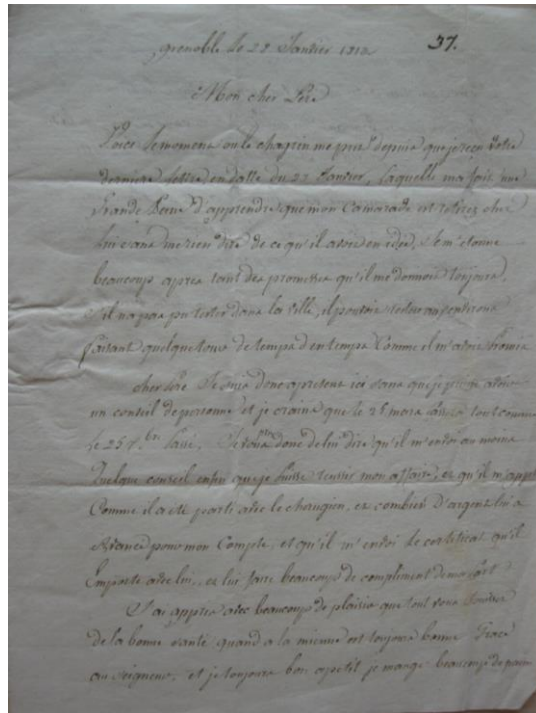 grenoble le 28 Janvier 1812 37.
Mon cher Pere
Voici le moment ou le chagrin me prit depuis que je reçu votre
derniere lettre en datte du 22 Janvier, laquelle ma fait une
Grande Peine d'apprendre que mon Camarade est retirez chez
lui sans me rien dire de ce qu'il avoit en idée, Je m'etonne
beaucoup apres tout des promesses qu'il me donnoit toujours,
S'il na pas pu rester dans la ville, il pouvoit rester au environs
faisant quelque tours de temps d'en temps Comme il m'avoit Promis
cher Pere Je suis donc apresent ici sans que je puisse avoir
un conseil de personne et je crains que le 25 mars Passera tout comme
le 25 Passé, donc de lui dire qu'il m'envoi au moins
Quelque conseil enfin que je Puisse mon affaire, et qu'il
Comme il a eté parti avec le et combien d'argent lui a
Avancé pour mon Compte, et qu'il m'envoi le certificat qu'il
Emporte avec lui, et lui faire beaucoup de compliment de ma Part
J'ai appris avec beaucoup de plaisir que tout vous
de la bonne santé quand a la mienne est toujours bonne Grace
au Seigneur, et je toujours bon apetit je mange beaucoup de pain